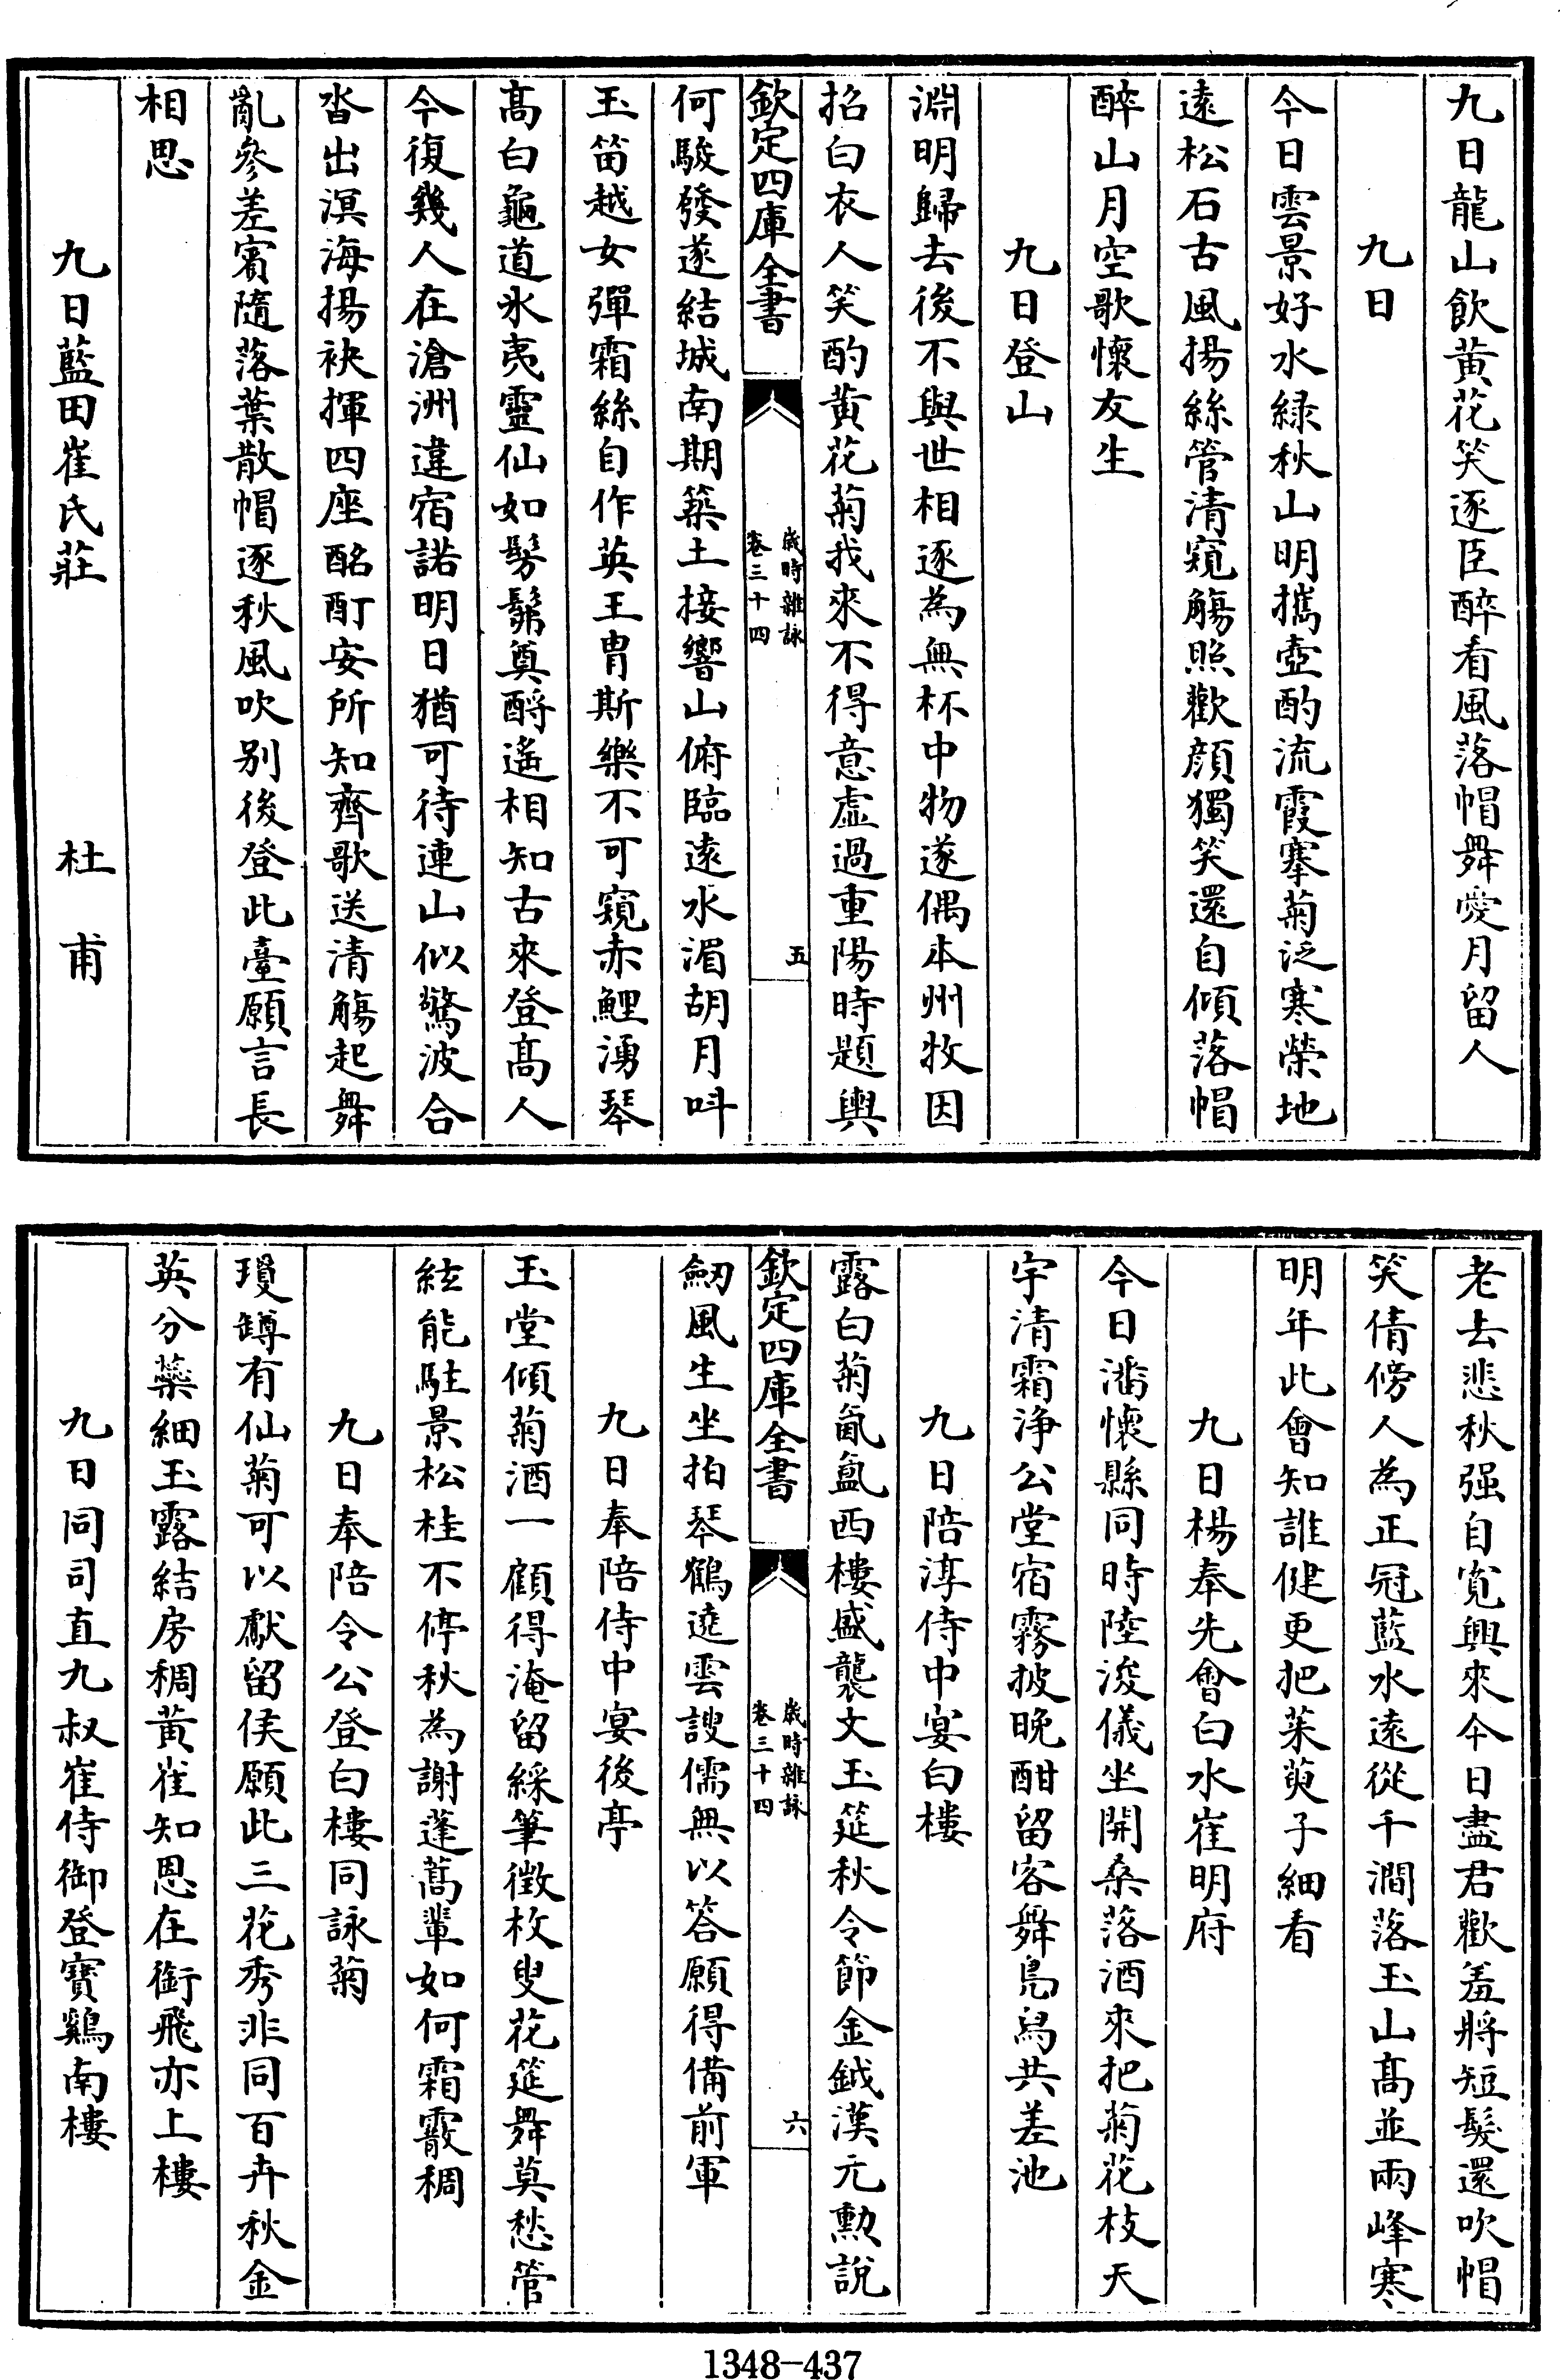 九日龍山飲黄花笑逐臣醉看風落帽舞愛月留人
九日
今日雲景好水緑秋山明攜壺酌流霞搴菊泛寒榮地
遠松石古風揚絲管清窺觴照歡顔獨笑還自傾落帽
醉山月空歌懷友生
九日登山
淵明歸去後不與世相逐為無杯中物遂偶本州牧因
招白衣人笑酌黄花菊我來不得意虛過重陽時題輿
欽定四庫全書
歳時雜詠
卷三十四
五
何駿發遂結城南期築土接響山俯臨遠水湄胡月叫
玉笛越女彈霜絲自作英王胄斯樂不可窺赤鯉湧琴
髙白龜道氷夷靈仙如髣髴奠酹遙相知古來登髙人
今復幾人在滄洲違宿諾明日猶可待連山似驚波合
沓出溟海揚袂揮四座酩酊安所知齊歌送清觴起舞
亂參差賓隨落葉散帽逐秋風吹别後登此臺願言長
相思
九日藍田崔氏莊 杜甫
老去悲秋强自寛興來今日盡君歡羞將短髮還吹帽
笑倩傍人為正冠藍水遠從千澗落玉山髙並兩峰寒
明年此會知誰健更把茱萸子細看
九日楊奉先會白水崔明府
今日潘懷縣同時陸浚儀坐開桑落酒來把菊花枝天
宇清霜淨公堂宿霧披晚酣留客舞鳬舄共差池
九日陪淳侍中宴白樓
露白菊氤氲西樓盛襲文玉筵秋令節金鉞漢元勲說
劒風生坐拍琴鶴遶雲謏儒無以答願得備前軍
欽定四庫全書
歳時雜詠
卷三十四
六
九日奉陪侍中宴後亭
玉堂傾菊酒一顧得淹留綵筆徵枚叟花筵舞莫愁管
絃能駐景松桂不停秋為謝蓬蒿輩如何霜霰稠
九日奉陪令公登白樓同詠菊
瓊罇有仙菊可以獻留侯願此三花秀非同百卉秋金
英分蘂細玉露結房稠黄雀知恩在銜飛亦上樓
九日同司直九叔崔侍御登寶鷄南樓
1348-437